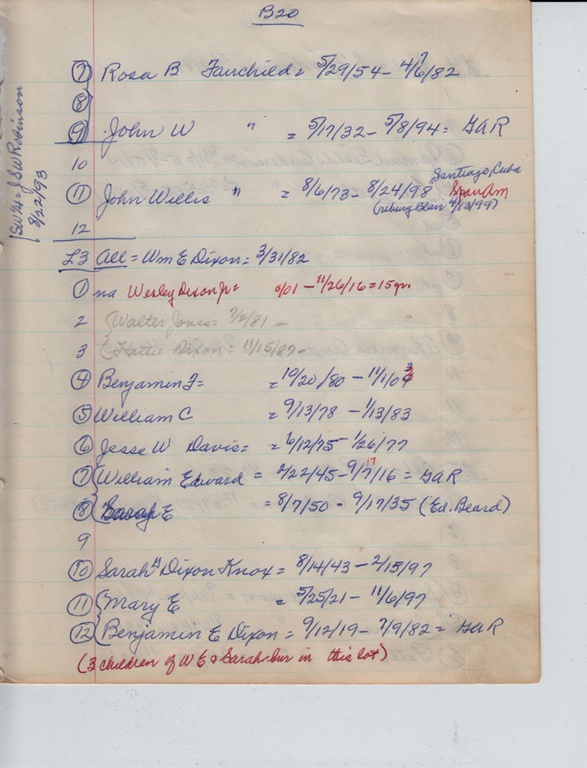 B20
⑦ Rosa B Fairchild = 5/29/54 - 4/6?/82
⑧
⑨ John W " = 5/17/32 - 5/8/94 = GAR
10
Santiago, Cuba
⑪ John Willis " = 8/6/73 - 8/24/98 SpanAm
(reburg Blair 4/13/99)
12
SW¼ - J SW Robinson
8/22/93
L3 All = Wm E Dixon = 3/31/82
① na Wesley Dixon Jr = 0/01 - 11/26/16 = 15yr
2 Walter Jones = 7/2/81 -
3 Hattie Dixon = 11/15/87 -
④ Benjamin F = = 10/20/80 - 11/1/03
⑤ William C = 9/13/78 - 1/13/83
⑥ Jesse W Davis = = 6/12/75 - 1/26/77
⑦ William Edward = 2/22/45 - 9/17/16 = GAR
⑧ Sarah E = 8/7/50 - 9/17/35 (Ed. Beard)
9
⑩ Sarah "A" Dixon Knox = 8/14/43 - 2/15/97
⑪ Mary E = 5/25/21 - 11/6/97
⑫ Benjamin E Dixon = 9/12/19 - 7/9/82 = GAR
(3 children of WE & Sarah bur in this lot)